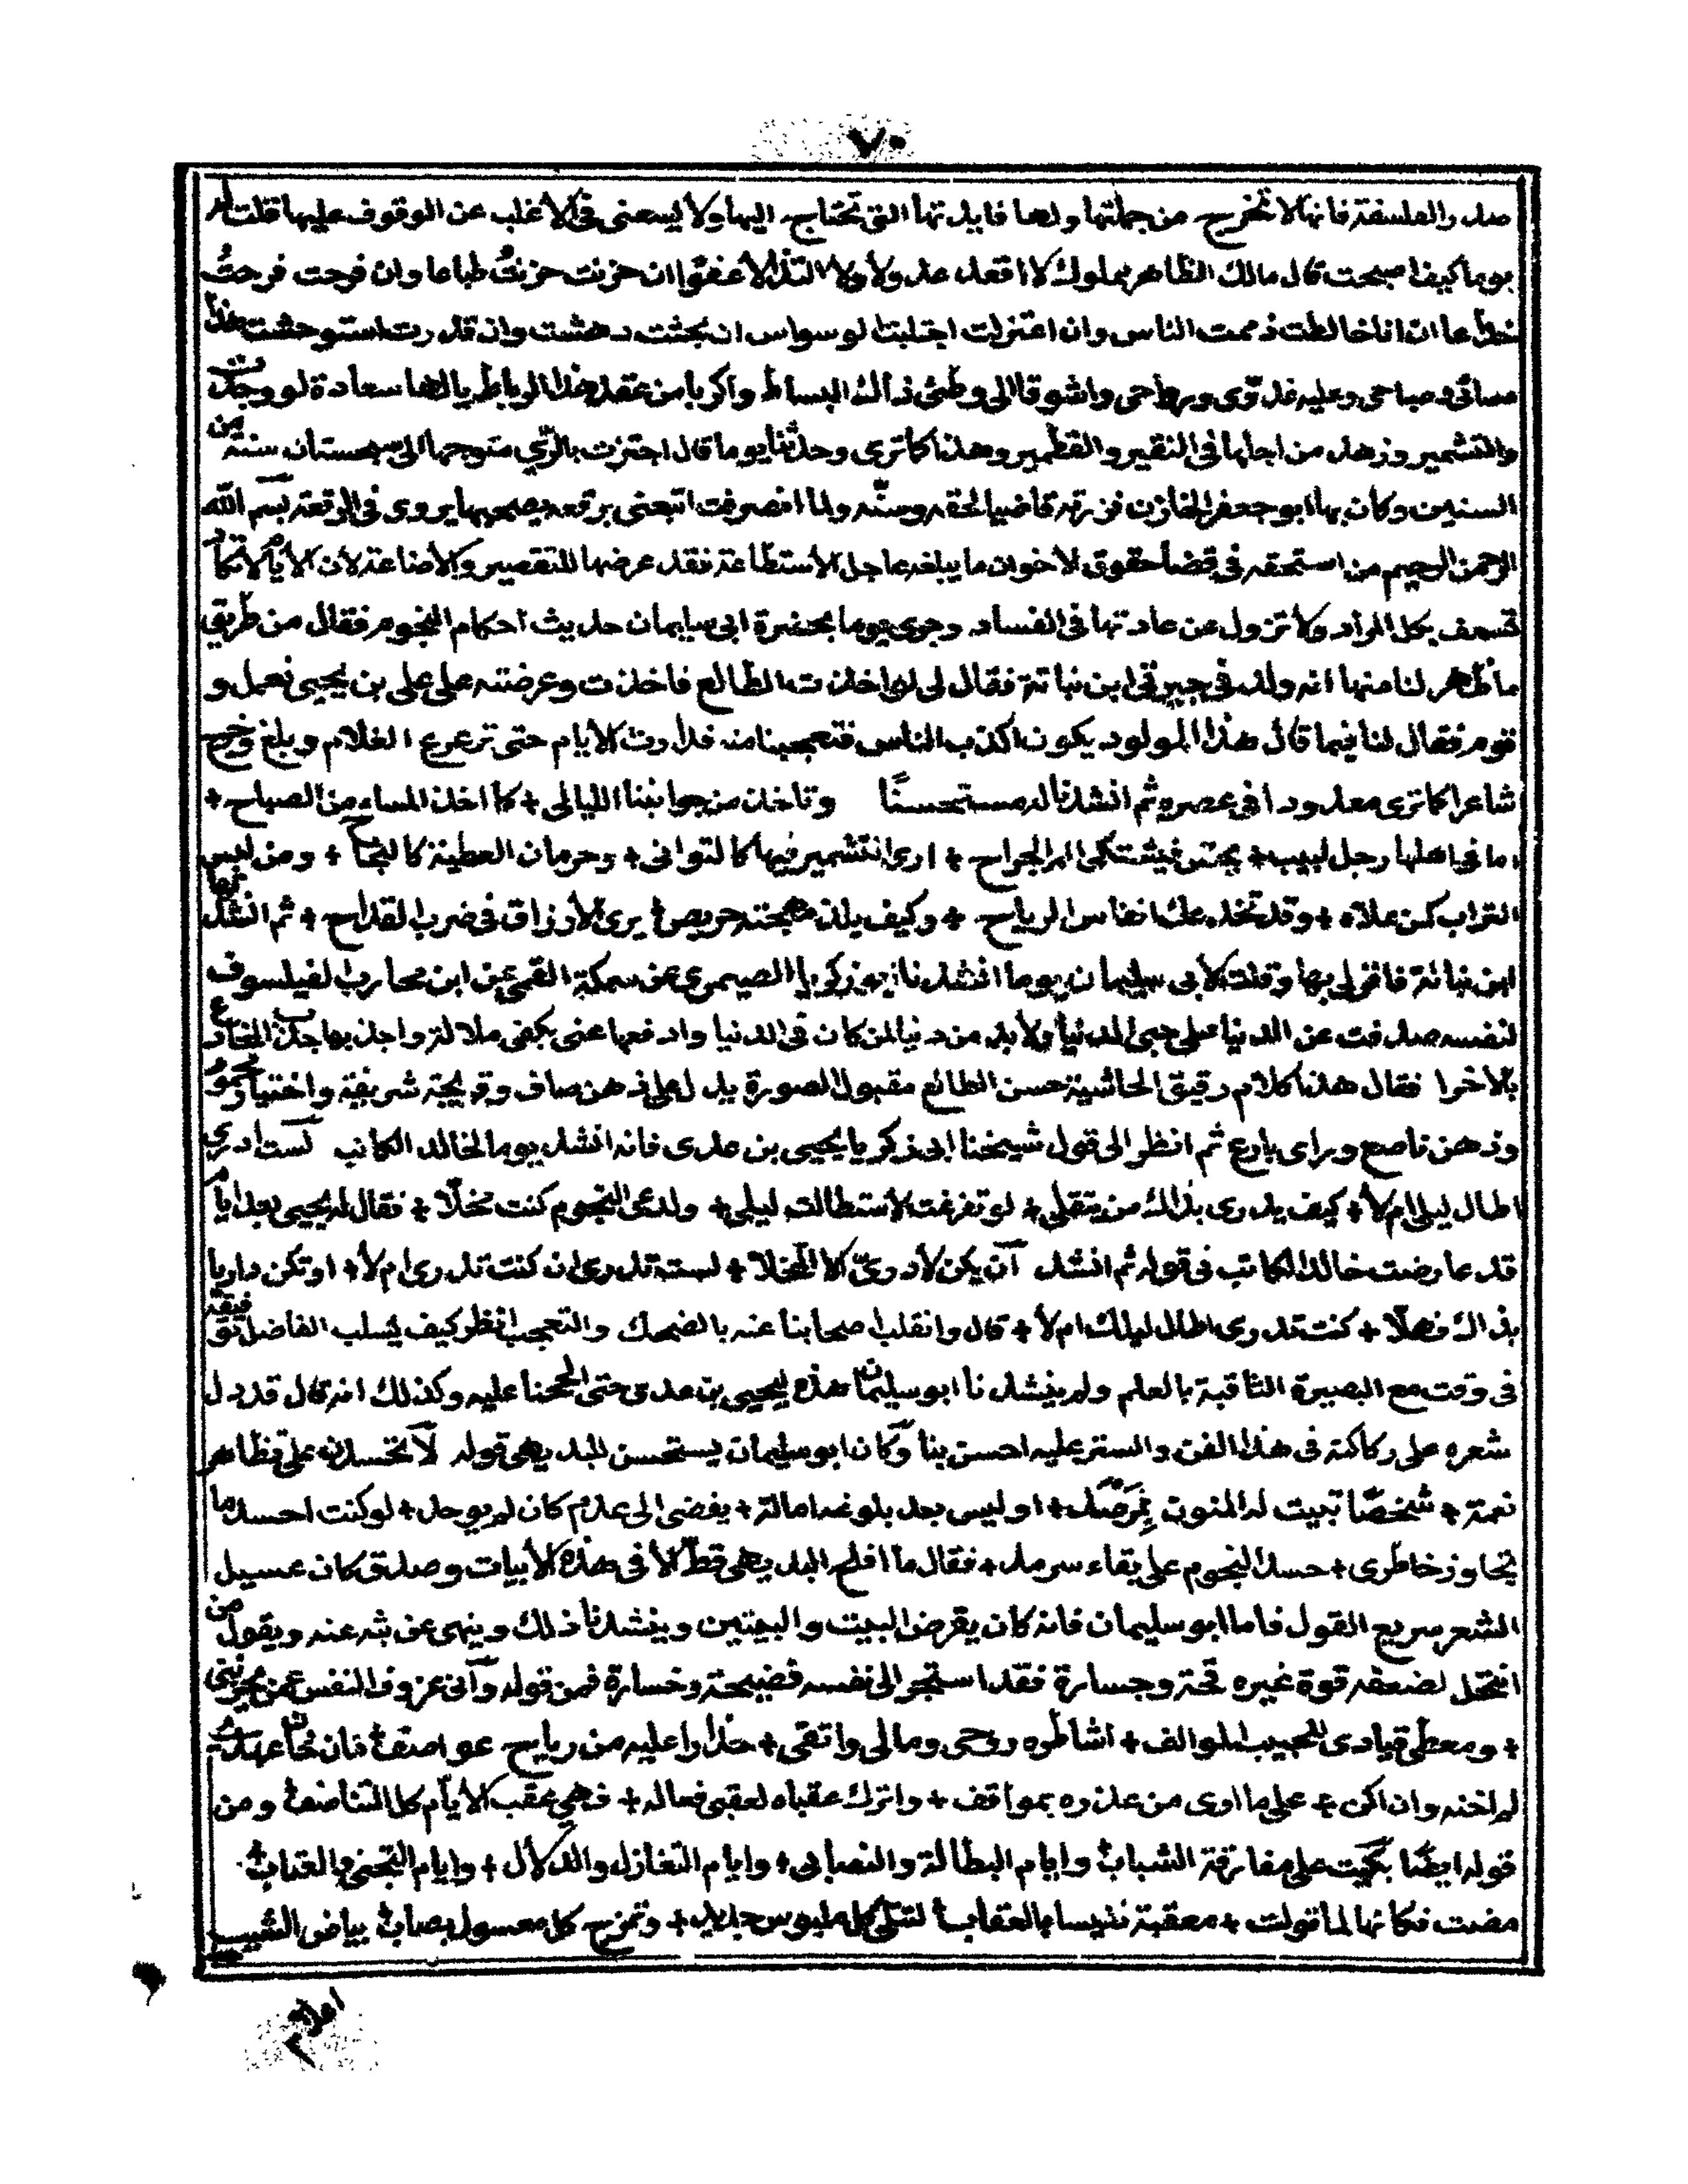 ٧٠
صدر الفلسفة فانها لا تخرج من جملتها ولها فايدتها التى تحتاج اليها ولا يسعنى فى الاغلب عن الوقوف عليها قلت له
يوما كيف اصبحت قال مالك الظاهر مملوك لا افعل ولا ولا ان حزنت حزنت طباعا وان فرحت فرحت
خداعا ان انا خالطت ذممت الناس وان اعتزلت اجتلبت الوسواس ان بحثت دهشت وان قدرت استوحشت هذا
مسائى وصباحى وعليه غدوى ورواحى واشوقا الى وطئ ذلك البساط واكربا من عقد هذا الرباط يا لها سعادة لو وجدت
والتشمير وزهد من اجلها فى النقير والقطمير وهذا كما ترى وحدثنا يوما قال اجتزت بالرّي متوجها الى سجستان سنة من
السنين وكان بها ابو جعفر الخازن فزرته قاضيا لحقه وسنّه ولما انصرفت اتبعنى برقعة يروى فى الرقعة بسم الله
الرحمن الرحيم من استحقه فى قضاء حقوق الاخوان ما يبلغه عاجل الاستطاعة فقد عرضها للتقصير والاضاعة لان الايام لا تكاد
تسعف بكل المراد ولا تزول عن عادتها فى الفساد وجرى يوما بحضرة ابى سليمان حديث احكام النجوم فقال من طريق
ما ظهر لنا منها انه ولد فى جيرتى ابن نباتة فقال لى لو اخذت الطالع فاخذت وعرضته على على بن يحيى فعمل و
قوم فقال لنا فيما قال هذا المولود يكون اكذب الناس فتعجبنا منه فدارت الايام حتى ترعرع الغلام وبلغ وخرج
شاعرا كما ترى معدودا فى عصره ثم انشدنا له مستحسنًا وتاخذ من جوانبنا الليالى + كما اخذ المساء من الصباح +
اما فى اهلها رجل لبيب + يحس فيشتكى الم الجراح + ارى التشمير فيها كالتوانى + وحرمان العطية كالنجاح + ومن لبس
التراب كمن علاه + وقد تخدعك انفاس الرياح + وكيف يلذ مهجته حريص يرى الارزاق فى ضرب القداح + ثم انشدنا
ابن نباتة فانقر لى بها وقلت لابى سليمان يوما انشدنا ابو زكريا الصيمرى عن سمكة القمى عن ابن محارب الفيلسوف
لنفسه صدفت عن الدنيا على حبى الدنيا ولا بد من دنيا لمن كان فى الدنيا وادفعها عنى بكفى ملالة واجذبها جذب المخادع
بالاخرا فقال هذا كلام رقيق الحاشية حسن الطالع مقبول الصورة يدل على ذهن صاف وقريحة شريفة واختيار محمود
وذهن ناصع وراى بارع ثم انظر الى قول شيخنا ابى زكريا يحيى بن عدى فانه انشد يوما لخالد الكاتب لست ادرى
اطال ليلى ام لا + كيف يدرى بذاك من يتقلى + لو تفرغت لاستطالة ليلى + ولرعى النجوم كنت مخلّا + فقال له يحيى بعد ايام
قد عارضت خالد الكاتب فى قوله ثم انشد آن يكن لا درىّ كالمخلا + لست تدرى ان كنت تدرى ام لا + او تكن داريا
بذاك فهلّا + كنت تدرى اطال ليلك ام لا + قال وانقلب اصحابنا عنه بالضحك والتعجب انظر كيف يسلب الفاضل توفيقه
فى وقت مع البصيرة الثاقبة بالعلم ولم ينشدنا ابو سليمان هذه ليحيى بن عدى حتى الححنا عليه وكذلك انه قال قد دل
شعره على ركاكته فى هذا الفن والستر عليه احسن بنا وكان ابو سليمان يستحسن للبديهى قوله لا تحسدن على تظاهر
نعمة + شخصًا تبيت له المنون بمَرصَد + اوليس بعد بلوغه اماله + يفضى الى عدم كان لم يوجد + لو كنت احسد ما
تجاوز خاطرى + حسد النجوم على بقاء سرمد + فقال ما افلح البديهى قطّ الا فى هذه الابيات وصدق كان عسيل
الشعر سريع القول فاما ابو سليمان فانه كان يقرض البيت والبيتين وينشدنا ذلك وينهى عن بثه عنه ويقول من
انتحل لضعفه قوة غيره قحة وجسارة فقد استجر الى نفسه فضيحة وخسارة فمن قوله وآنى عزوف النفس عمن يخوننى
+ ومعطى قيادى للحبيب الموالف + اشاطره روحى ومالى واتقى + حذارا عليه من رياح عواصف فان خان عهدى
لم اخنه وان اكن + على ما ارى من عذره بمواقف + واترك عقباه لعقبى فعاله + فهى عقب الايام كل التناصف ومن
قوله ايضًا بكيت على مفارقة الشباب وايام البطالة والتصابى + وايام التغازل والدلال + وايام التجنى والعتاب
مضت فكانها لما تولت + معقبة نفيسا بالعقاب لتبلى كل ملبوس جديد + وتمزج كل معسول بصاب بياض الشيب
اعلام